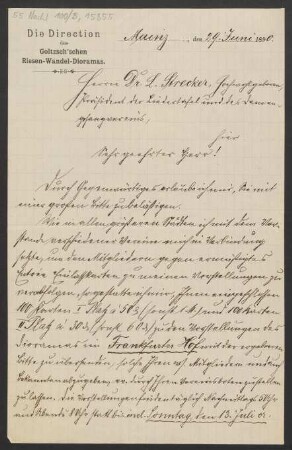 55 Nachl 100/B, 15355
Die Direction
des
Goltzsch'schen
Riesen-Wandel-Dioramas.
Mainz, den 29. Juni 1890.
Herrn Dr. L. Strecker, Hochwohlgeboren,
Präsident der Liedertafel und des Damen-
gesangvereins,
hier
Sehr geehrter Herr!
Durch Gegenwärtiges erlaube ich mir, Sie mit
einer großen Bitte zu belästigen.
Wie in allen größeren Städten ich mit dem Vor-
stande verschiedener Vereine mich in Verbindung
setzte, um den Mitgliedern gegen ermäßigtes
Entrée Einlaßkarten zu meinen Vorstellungen zu
verabfolgen, so gestatte ich mir, Ihnen
100 Karten I Platz à 50 (sonst 1 M) und 100 Karten
II Platz à 30 (sonst 60) zu den Vorstellungen des
Dioramas im Frankfurter Hof mit der ergebenen
Bitte zu übersenden, solche Ihren Mitgliedern und
Bekannten abzugeben, ev. durch Ihren Vereinsboten zustellen
zu lassen. Die Vorstellungen finden täglich Nachmittag 5 Uhr
und Abends 8 Uhr statt bis incl. Sonntag, den 13. Juli